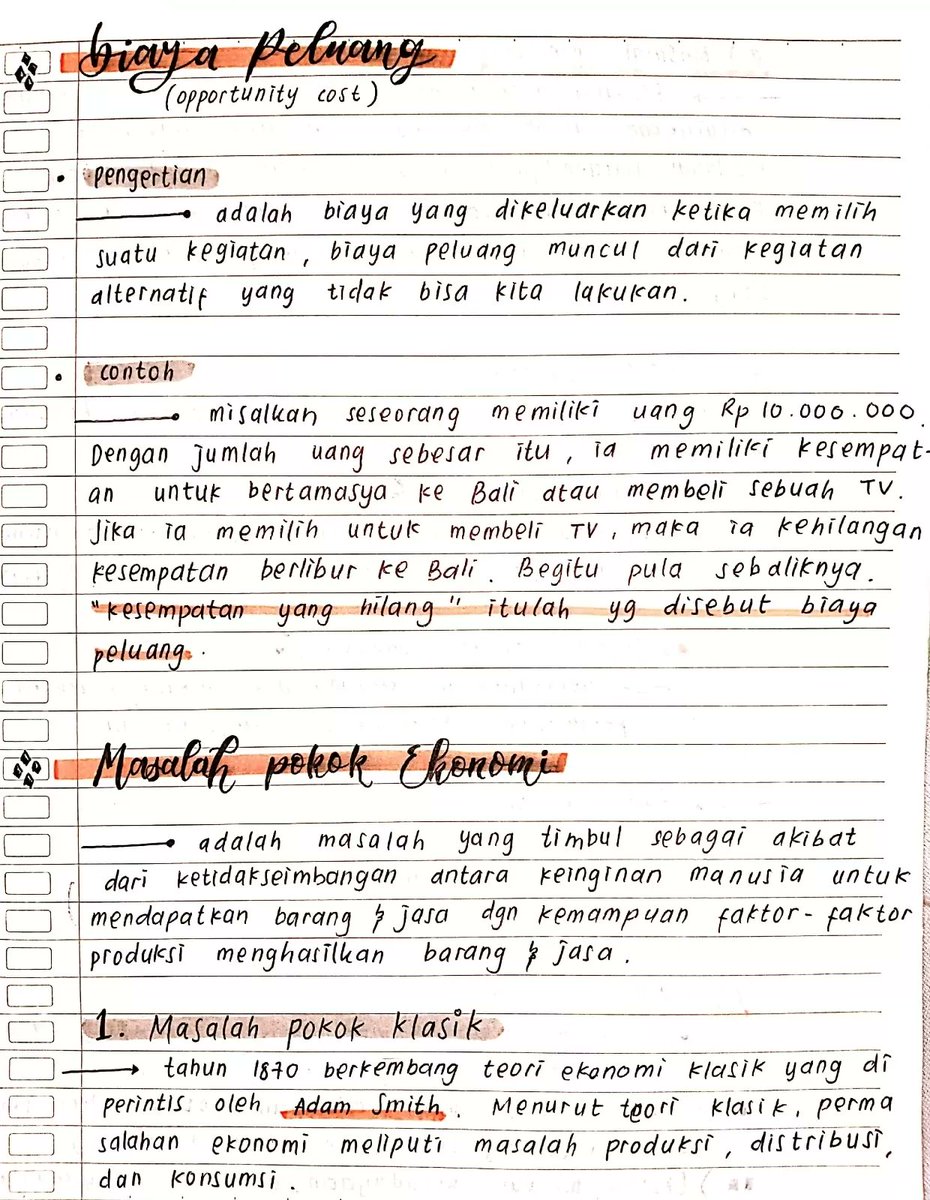 biaya peluang
(opportunity cost)
• pengertian
adalah biaya yang dikeluarkan ketika memilih
suatu kegiatan, biaya peluang muncul dari kegiatan
alternatif yang tidak bisa kita lakukan.
• contoh
misalkan seseorang memiliki uang Rp 10.000.000.
Dengan jumlah uang sebesar itu, ia memiliki kesempat-
an untuk bertamasya ke Bali atau membeli sebuah TV.
Jika ia memilih untuk membeli TV, maka ia kehilangan
kesempatan berlibur ke Bali. Begitu pula sebaliknya.
"kesempatan yang hilang" itulah yg disebut biaya
peluang.
Masalah pokok Ekonomi
adalah masalah yang timbul sebagai akibat
dari ketidakseimbangan antara keinginan manusia untuk
mendapatkan barang & jasa dgn kemampuan faktor-faktor
produksi menghasilkan barang & jasa.
1. Masalah pokok klasik
→ tahun 1870 berkembang teori ekonomi klasik yang di
perintis oleh Adam Smith. Menurut teori klasik, perma
salahan ekonomi meliputi masalah produksi, distribusi,
dan konsumsi.